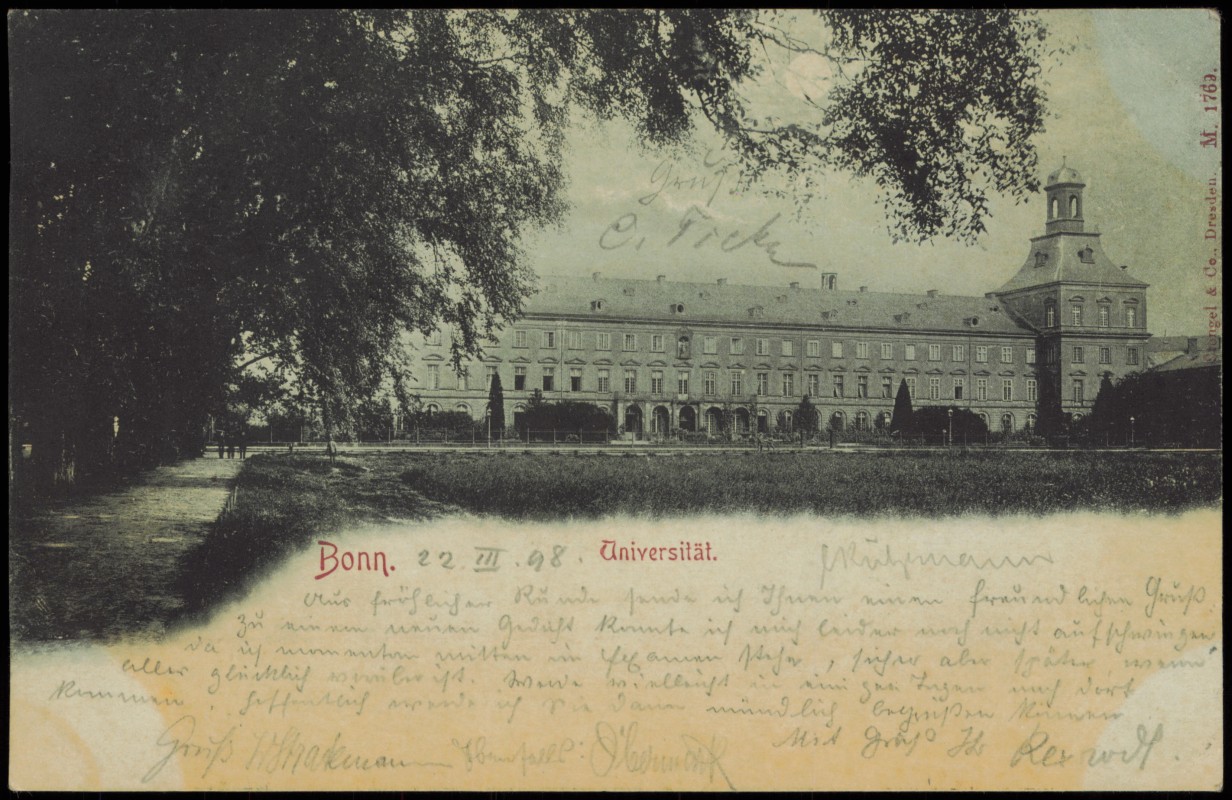 M. 1769.
& Co., Dresden.
Gruß
C. Ficke
Bonn. 22 III. 98. Universität.
Aus fröhlicher Runde sende ich Ihnen einen freundlichen Gruß
zu einem neuen Gedicht konnte ich mich leider noch nicht aufschwingen
da ich momentan mitten im Examen stehe, sicher aber später wenn
alles glücklich vorüber ist. Werde vielleicht in einigen Tagen nach dort
kommen, hoffentlich werde ich Sie dann mündlich begrüßen können
Mit Gruß Ihr Rexrodt.
Gruß
Ebenfalls: